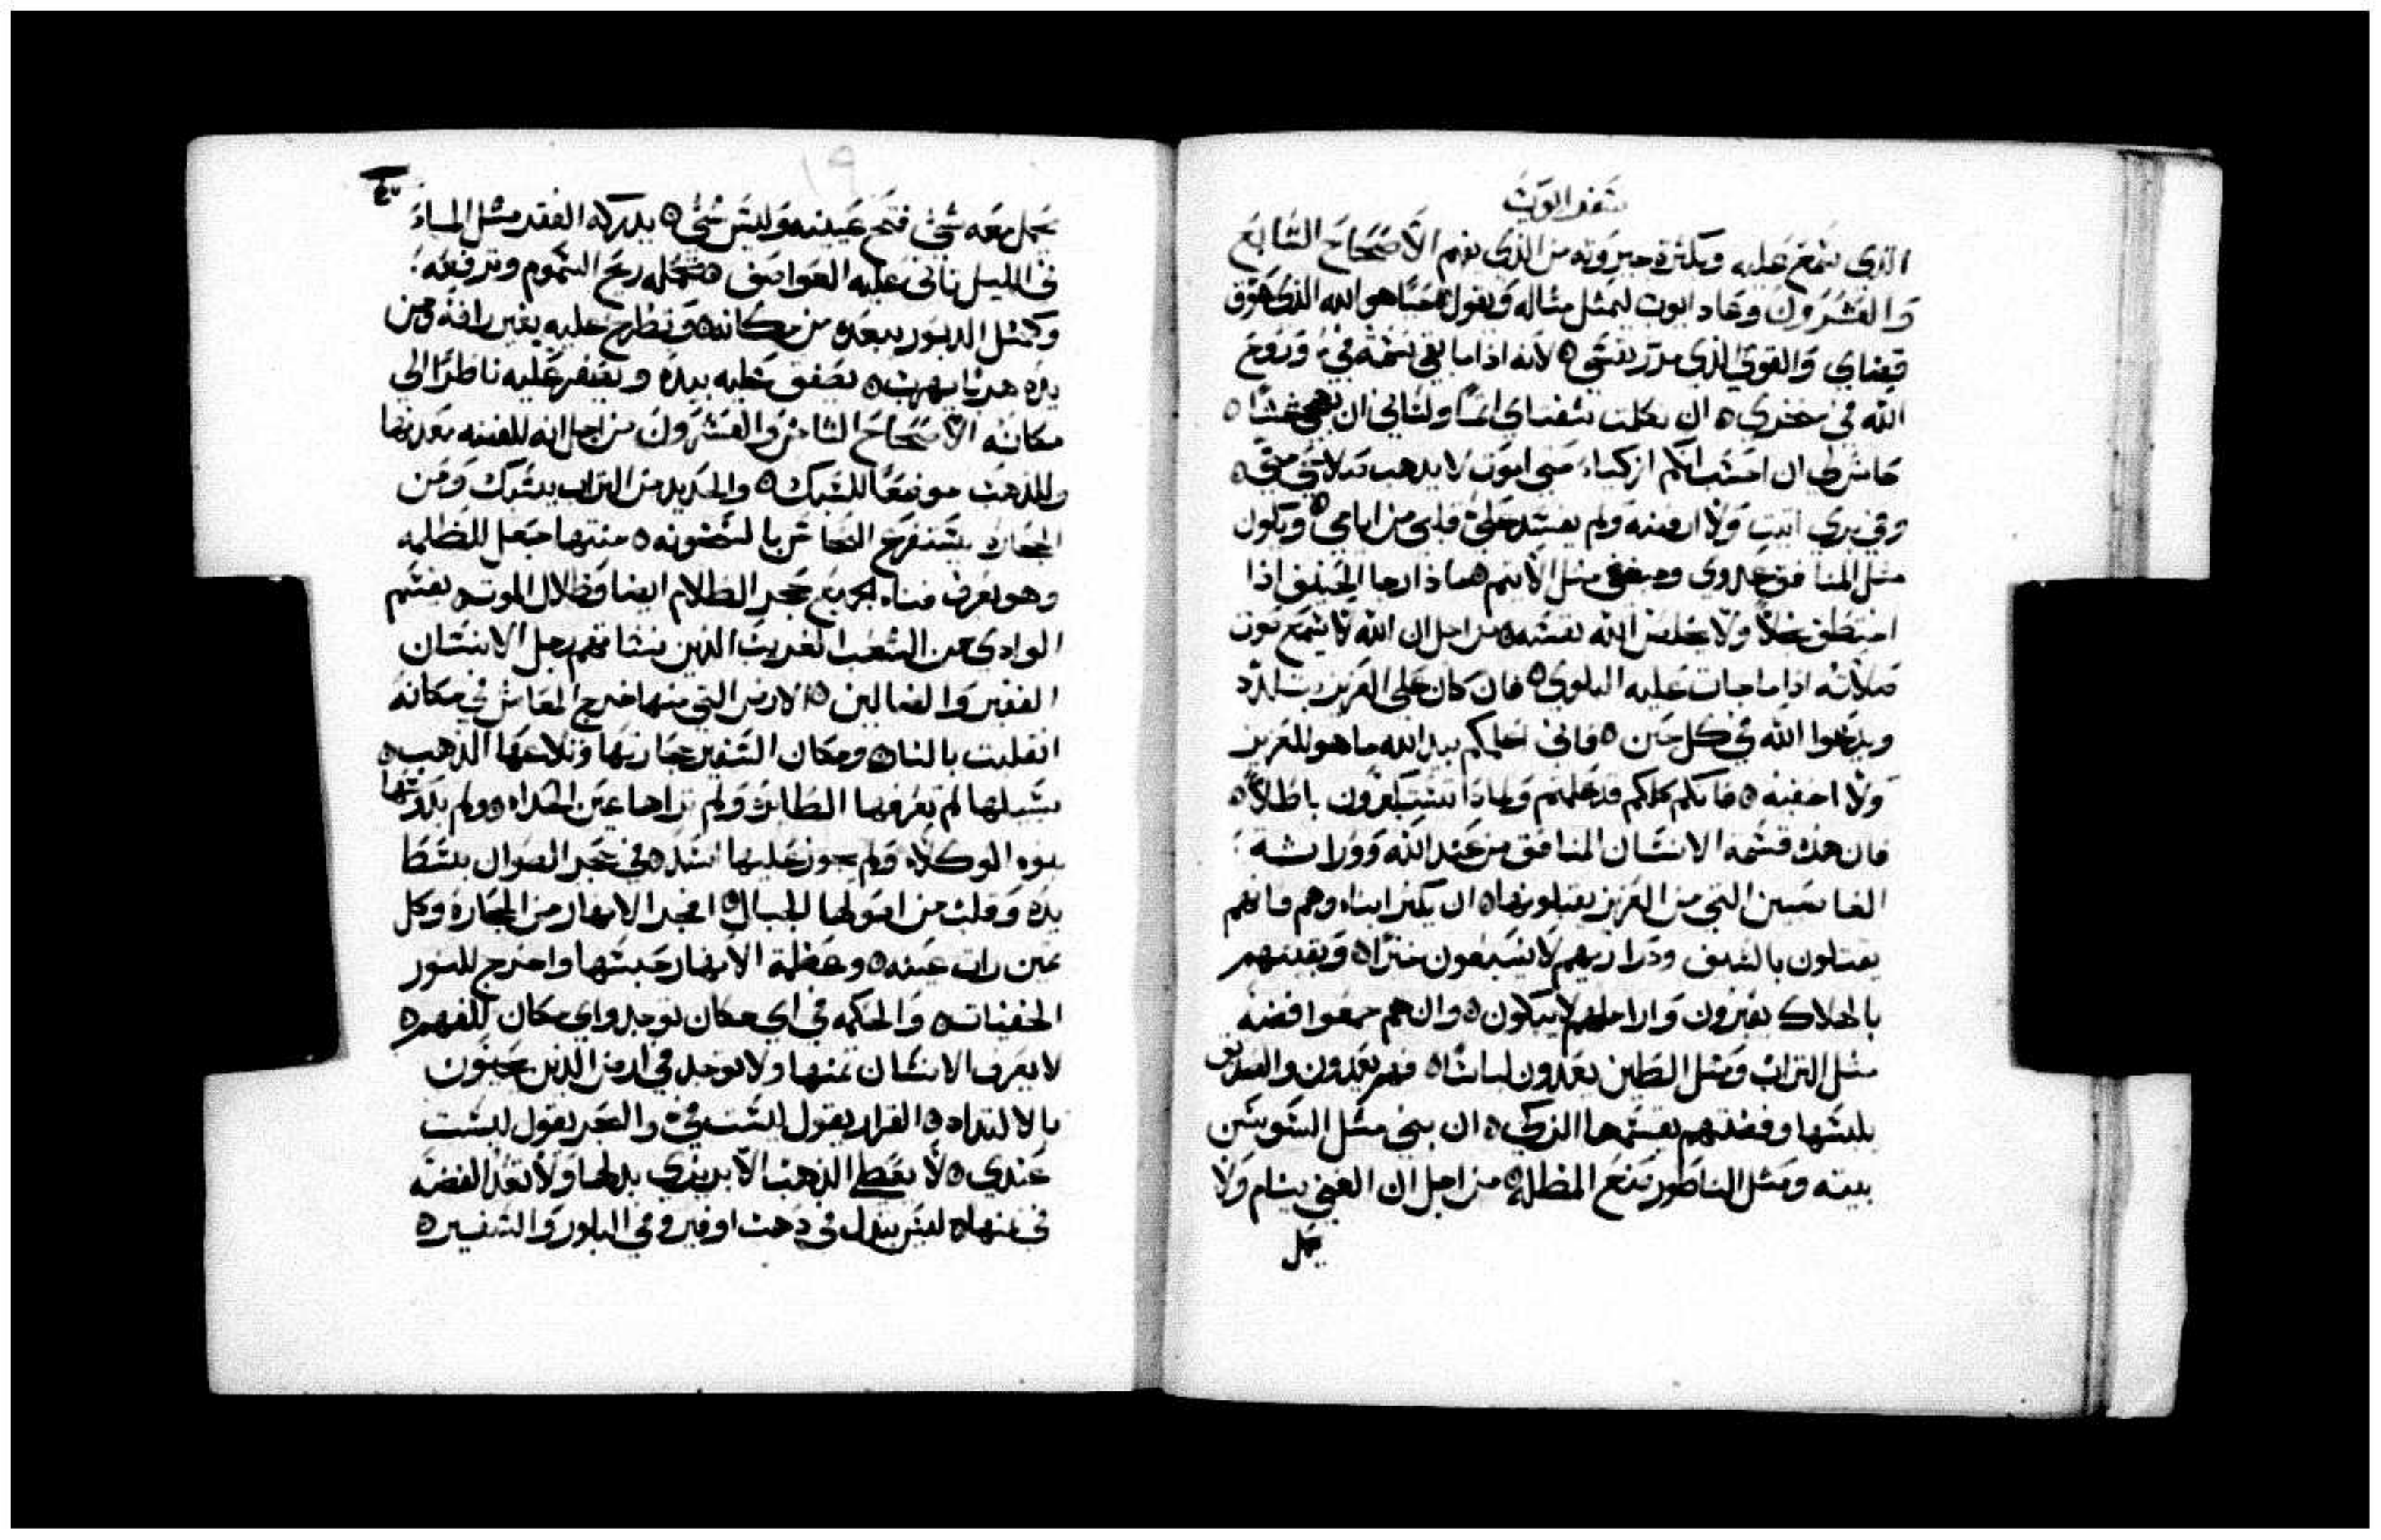 سفر ايوب
الذي سمع عليه وبكثرة جبروته من الذي يفهم الاصحاح السابع
والعشرون وعاد ايوب ليمثل مثاله ويقول حيا هو الله الذي عوق
قضاي والقوي الذي مرر نفسي ه لانه اذا ما بقي نسمة في وروح
الله في منخري ه ان تكلمت شفتاي اثما ولساني ان يهمي غشا ه
حاش لي ان احسبكم ازكياء حتى اموت لا يذهب تلاشي مني ه
وفي بري اتيت ولا ارفضه ولم يفسد علي قلبي من ايامي ه ويكون
مثل المنافق عدوي ومبغضي مثل الاثيم هماذا رجا الحنف اذا
اختطف خلا ولا يخلص الله نفسه ه من اجل ان الله لا يسمع صوت
صلاته اذا ما جات عليه البلوى ه فان كان على العزيز يتلذذ
ويدعوا الله في كل حين ه فاني اعلمكم بيد الله ما هو للعزيز
ولا اخفيه ه فانكم كلكم قد علمتم ولماذا تستكبرون باطلا ه
فان هذه قسمة الانسان المنافق من عند الله ووراثة
الغاصبين التي من العزيز يقبلونها ه ان يكثر ابناه وهم فانهم
يقتلون بالسيف وذراريهم لا يشبعون خبزا ه وبقيتهم
بالهلاك يقبرون واراملهم لا يبكون ه وان هم جمعوا فضة
مثل التراب ومثل الطين يعدون لباسا ه فهم يعدون والصديق
يلبسها وفضتهم يقسمها الزكي ه ان بنى مثل السوس
بيته ومثل الناطور صنع المظلة ه من اجل ان الغني ينام ولا
يحمل
١٩
يحمل معه شي فتح عينيه وليس شي ه يدركه الفقد مثل الماء
في الليل تاتي عليه العواصف ه تحمله ريح السموم وترفعه
وكمثل الدبور يبعده من مكانه ه وتطرح عليه بغير رافة ومن
يده هربا يهرب ه يصفق عليه بيده ويصفر عليه ناظرا الى
مكانه الاصحاح الثامن والعشرون من اجل انه للفضه معدنها
وللذهب موضعا للسبك ه والحديد من التراب يسبك ومن
الحجارة يستفرغ النحاس بالسخونه ه منتهاها جعل للظلمه
وهو يعرف فناه الجميع حجر الظلام ايضا وظلال الموت ه يقسم
الوادي من الشعب الغريب الذين نسا رجل الانسان
الفقير والضالين ه الارض التي منها خرج المعاش في مكانه
انقلبت بالنار ه ومكان السفير حجارتها وتلاعها الذهب ه
سبيلها لم يعرفها الطاير ولم تراها عين الحداه ه ولم يدسها
بنوه الوكلاه ولم يجوز عليها اسد ه في حجر الصوان بسط
يده وقلب من اصولها الجبال ه افجر الانهار من الحجارة وكل
ثمين رات عينه ه وعظمة الانهار حبسها واخرج للنور
الخفيات ه والحكمه في اي مكان توجد واي مكان للفهم ه
لا يعرف الانسان ثمنها ولا توجد في ارض الذين يحيون
بالالتداه ه القرار يقول ليست في والبحر يقول ليست
عندي ه لا يعطى الذهب الابريزي بدلها ولا تعد الفضه
في ثمنها ه ليس يبدل في ذهب اوفير وفي البلور والسفير ه